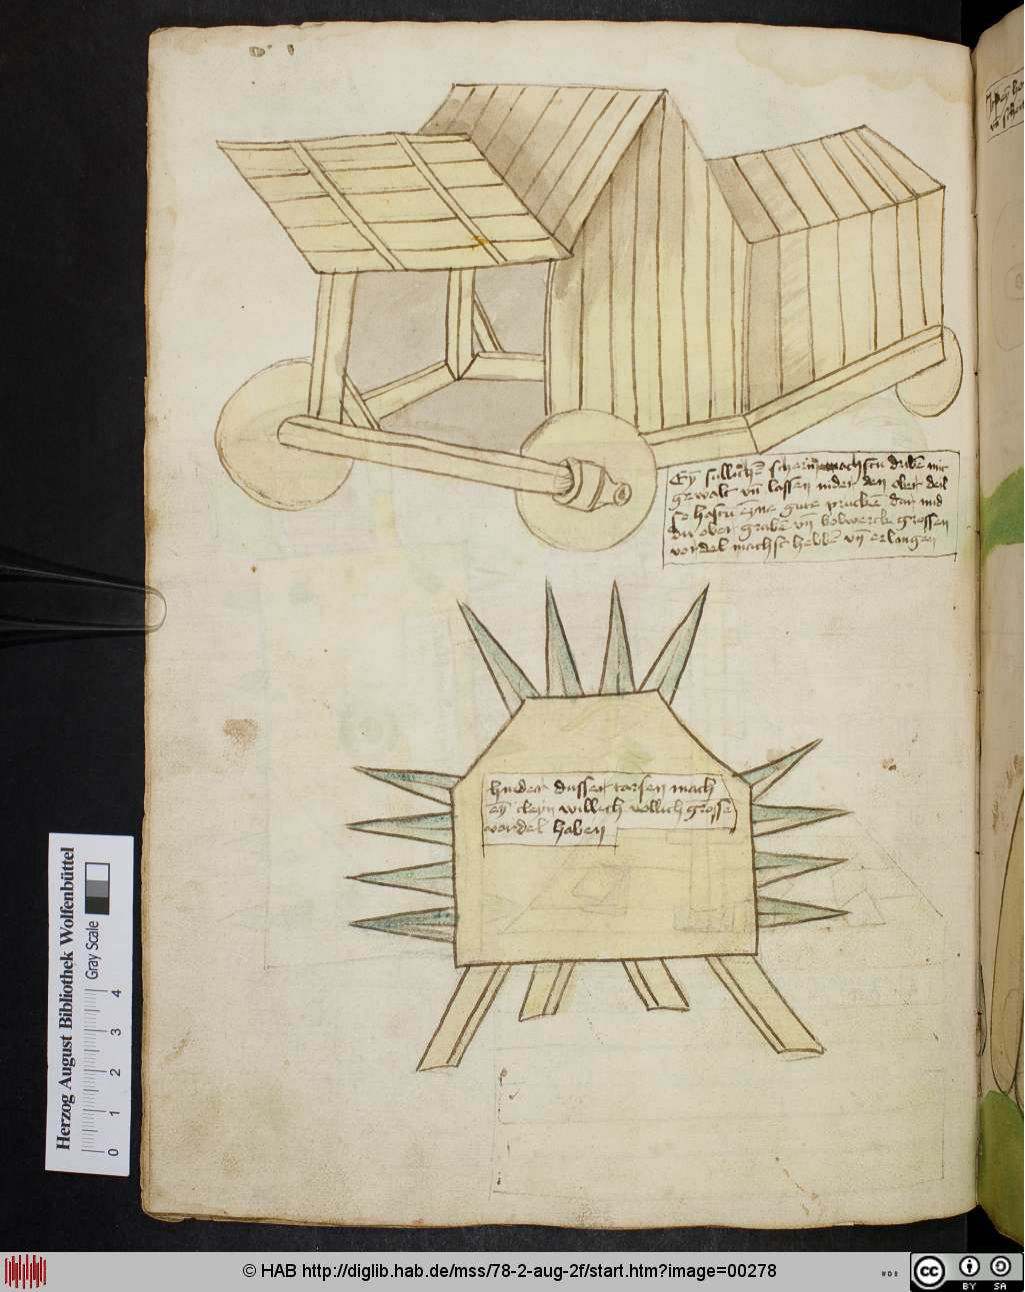 Eÿ sullichē scherm machstu dribē mit
gewalt vñ lassen nider den ober deil
so hastu eyne gute pruckē dar mid
du ober grabē vñ bolwerck grossen
vordel machst hebbē vñ erlangen
hinder dusser tarsen mach
eÿ cleyn willich vollich grosse
vordel haben
Herzog August Bibliothek Wolfenbüttel
Gray Scale
0 1 2 3 4
© HAB http://diglib.hab.de/mss/78-2-aug-2f/start.htm?image=00278
cc BY SA